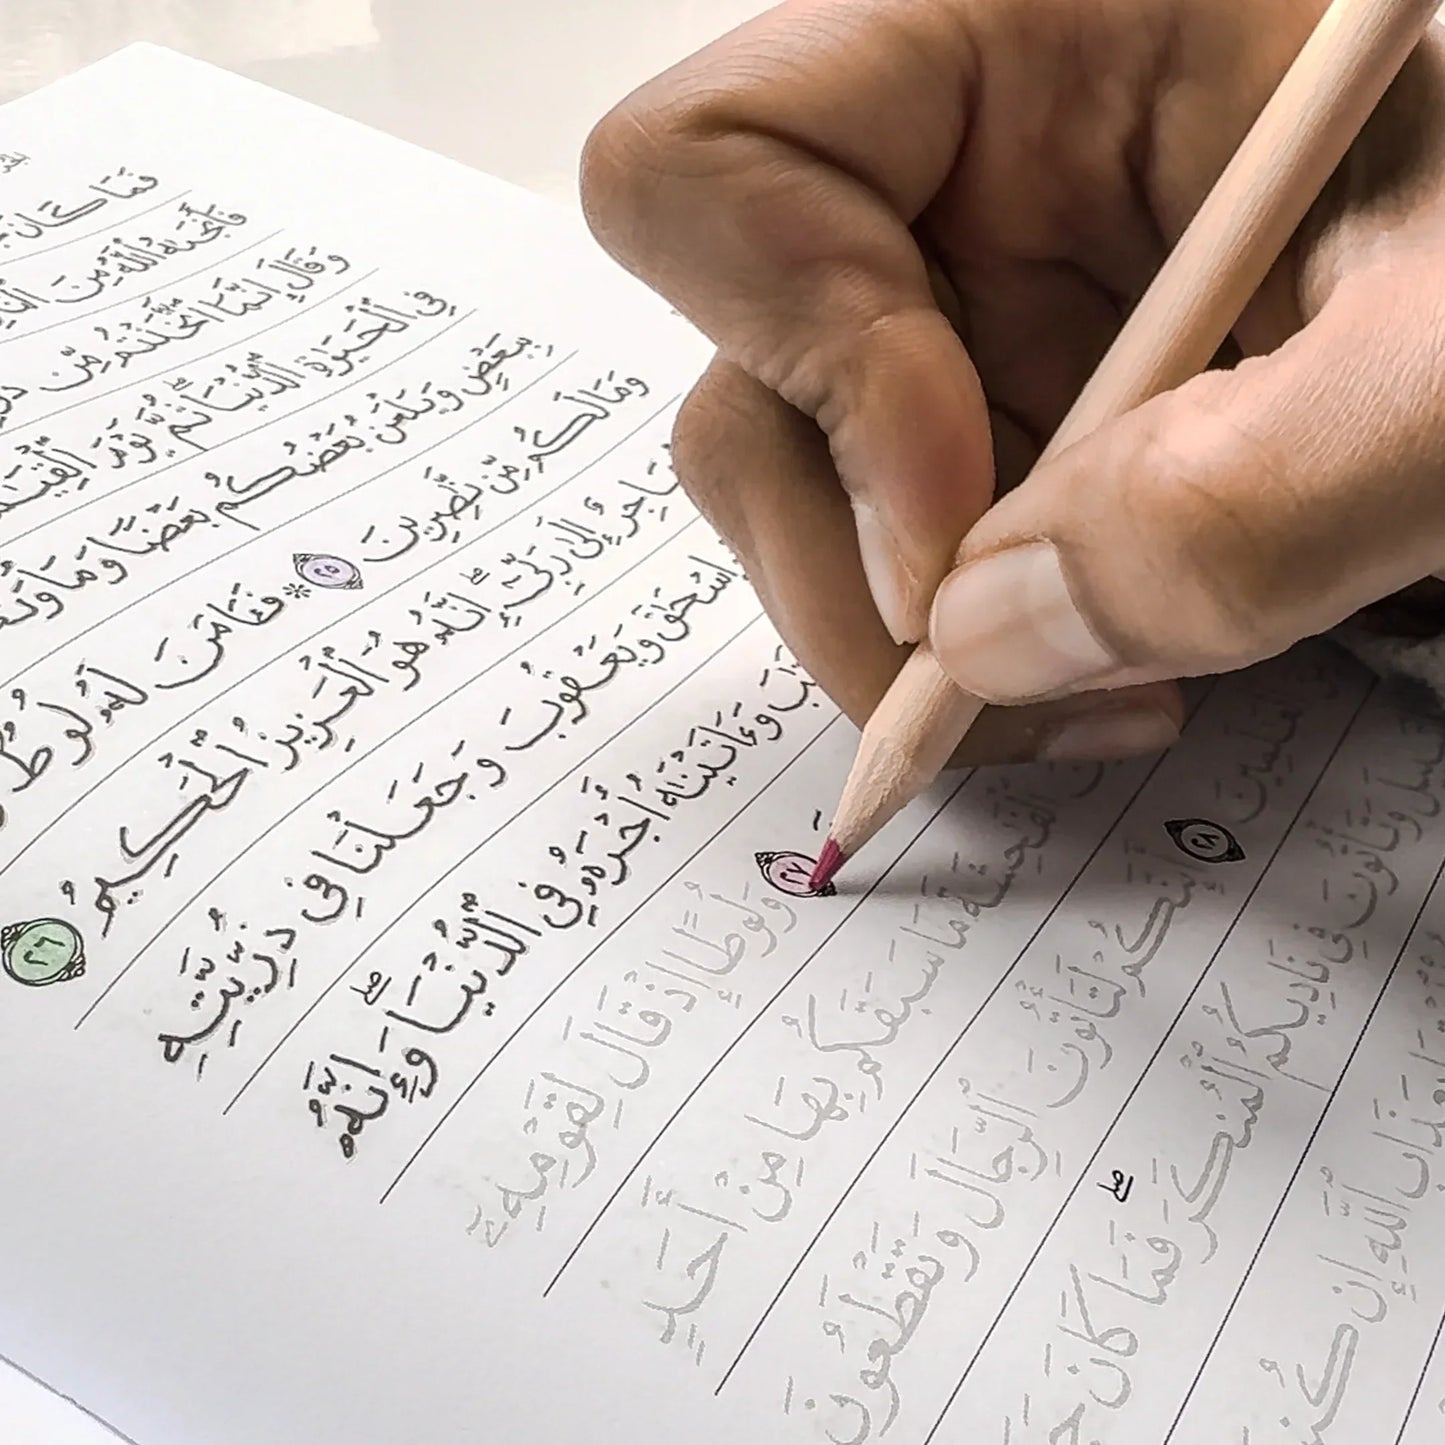 فَمَا كَانَ
فَأَنجَىٰهُ ٱللَّهُ مِنَ
وَقَالَ إِنَّمَا ٱتَّخَذْتُم مِّن
فِى ٱلْحَيَوٰةِ ٱلدُّنْيَا ثُمَّ يَوْمَ
بِبَعْضٍ وَيَلْعَنُ بَعْضُكُم بَعْضًا
وَمَا لَكُم مِّن نَّـٰصِرِينَ ٢٥ ۞ فَـَٔامَنَ لَهُۥ لُوطٌ
إِلَىٰ رَبِّىٓ ۖ إِنَّهُۥ هُوَ ٱلْعَزِيزُ ٱلْحَكِيمُ ٢٦
إِسْحَـٰقَ وَيَعْقُوبَ وَجَعَلْنَا فِى ذُرِّيَّتِهِ
وَءَاتَيْنَـٰهُ أَجْرَهُۥ فِى ٱلدُّنْيَا ۖ وَإِنَّهُۥ
٢٧ وَلُوطًا إِذْ قَالَ لِقَوْمِهِۦٓ
ٱلْفَـٰحِشَةَ مَا سَبَقَكُم بِهَا مِنْ أَحَدٍ
٢٨ أَئِنَّكُمْ لَتَأْتُونَ ٱلرِّجَالَ وَتَقْطَعُونَ
وَتَأْتُونَ فِى نَادِيكُمُ ٱلْمُنكَرَ ۖ فَمَا كَانَ
بِعَذَابِ ٱللَّهِ إِن